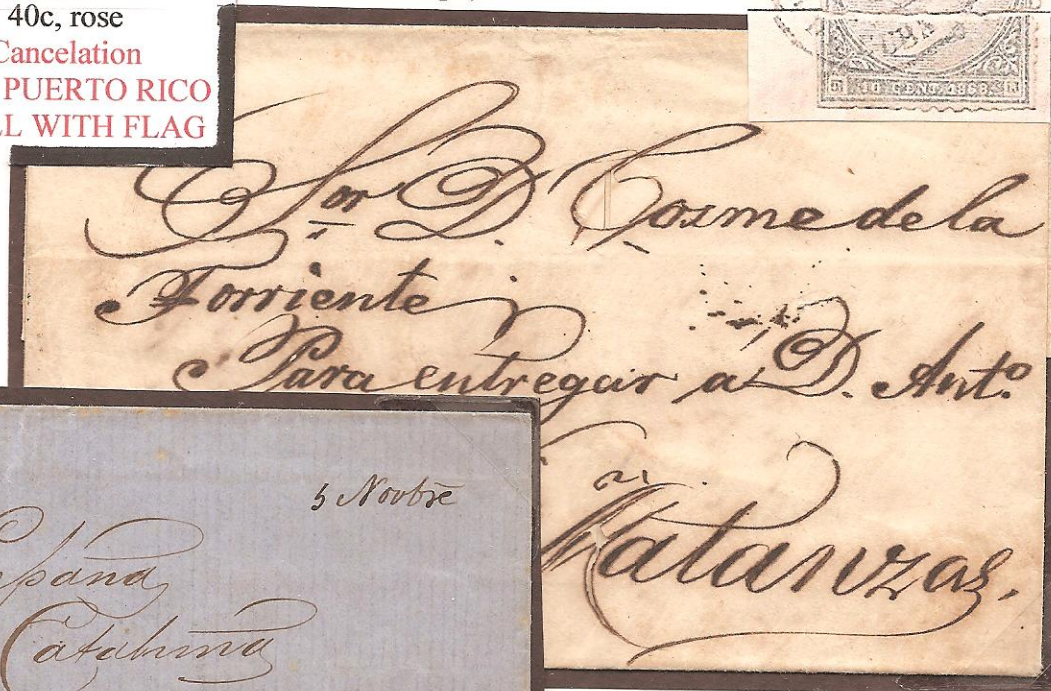 40c, rose
Cancelation
PUERTO RICO
LL WITH FLAG
10 CENT. 1868
Sor D. Cosme de la
Torriente
Para entregar a D. Anto.
Matanzas.
5 Novbre
España
Cataluña